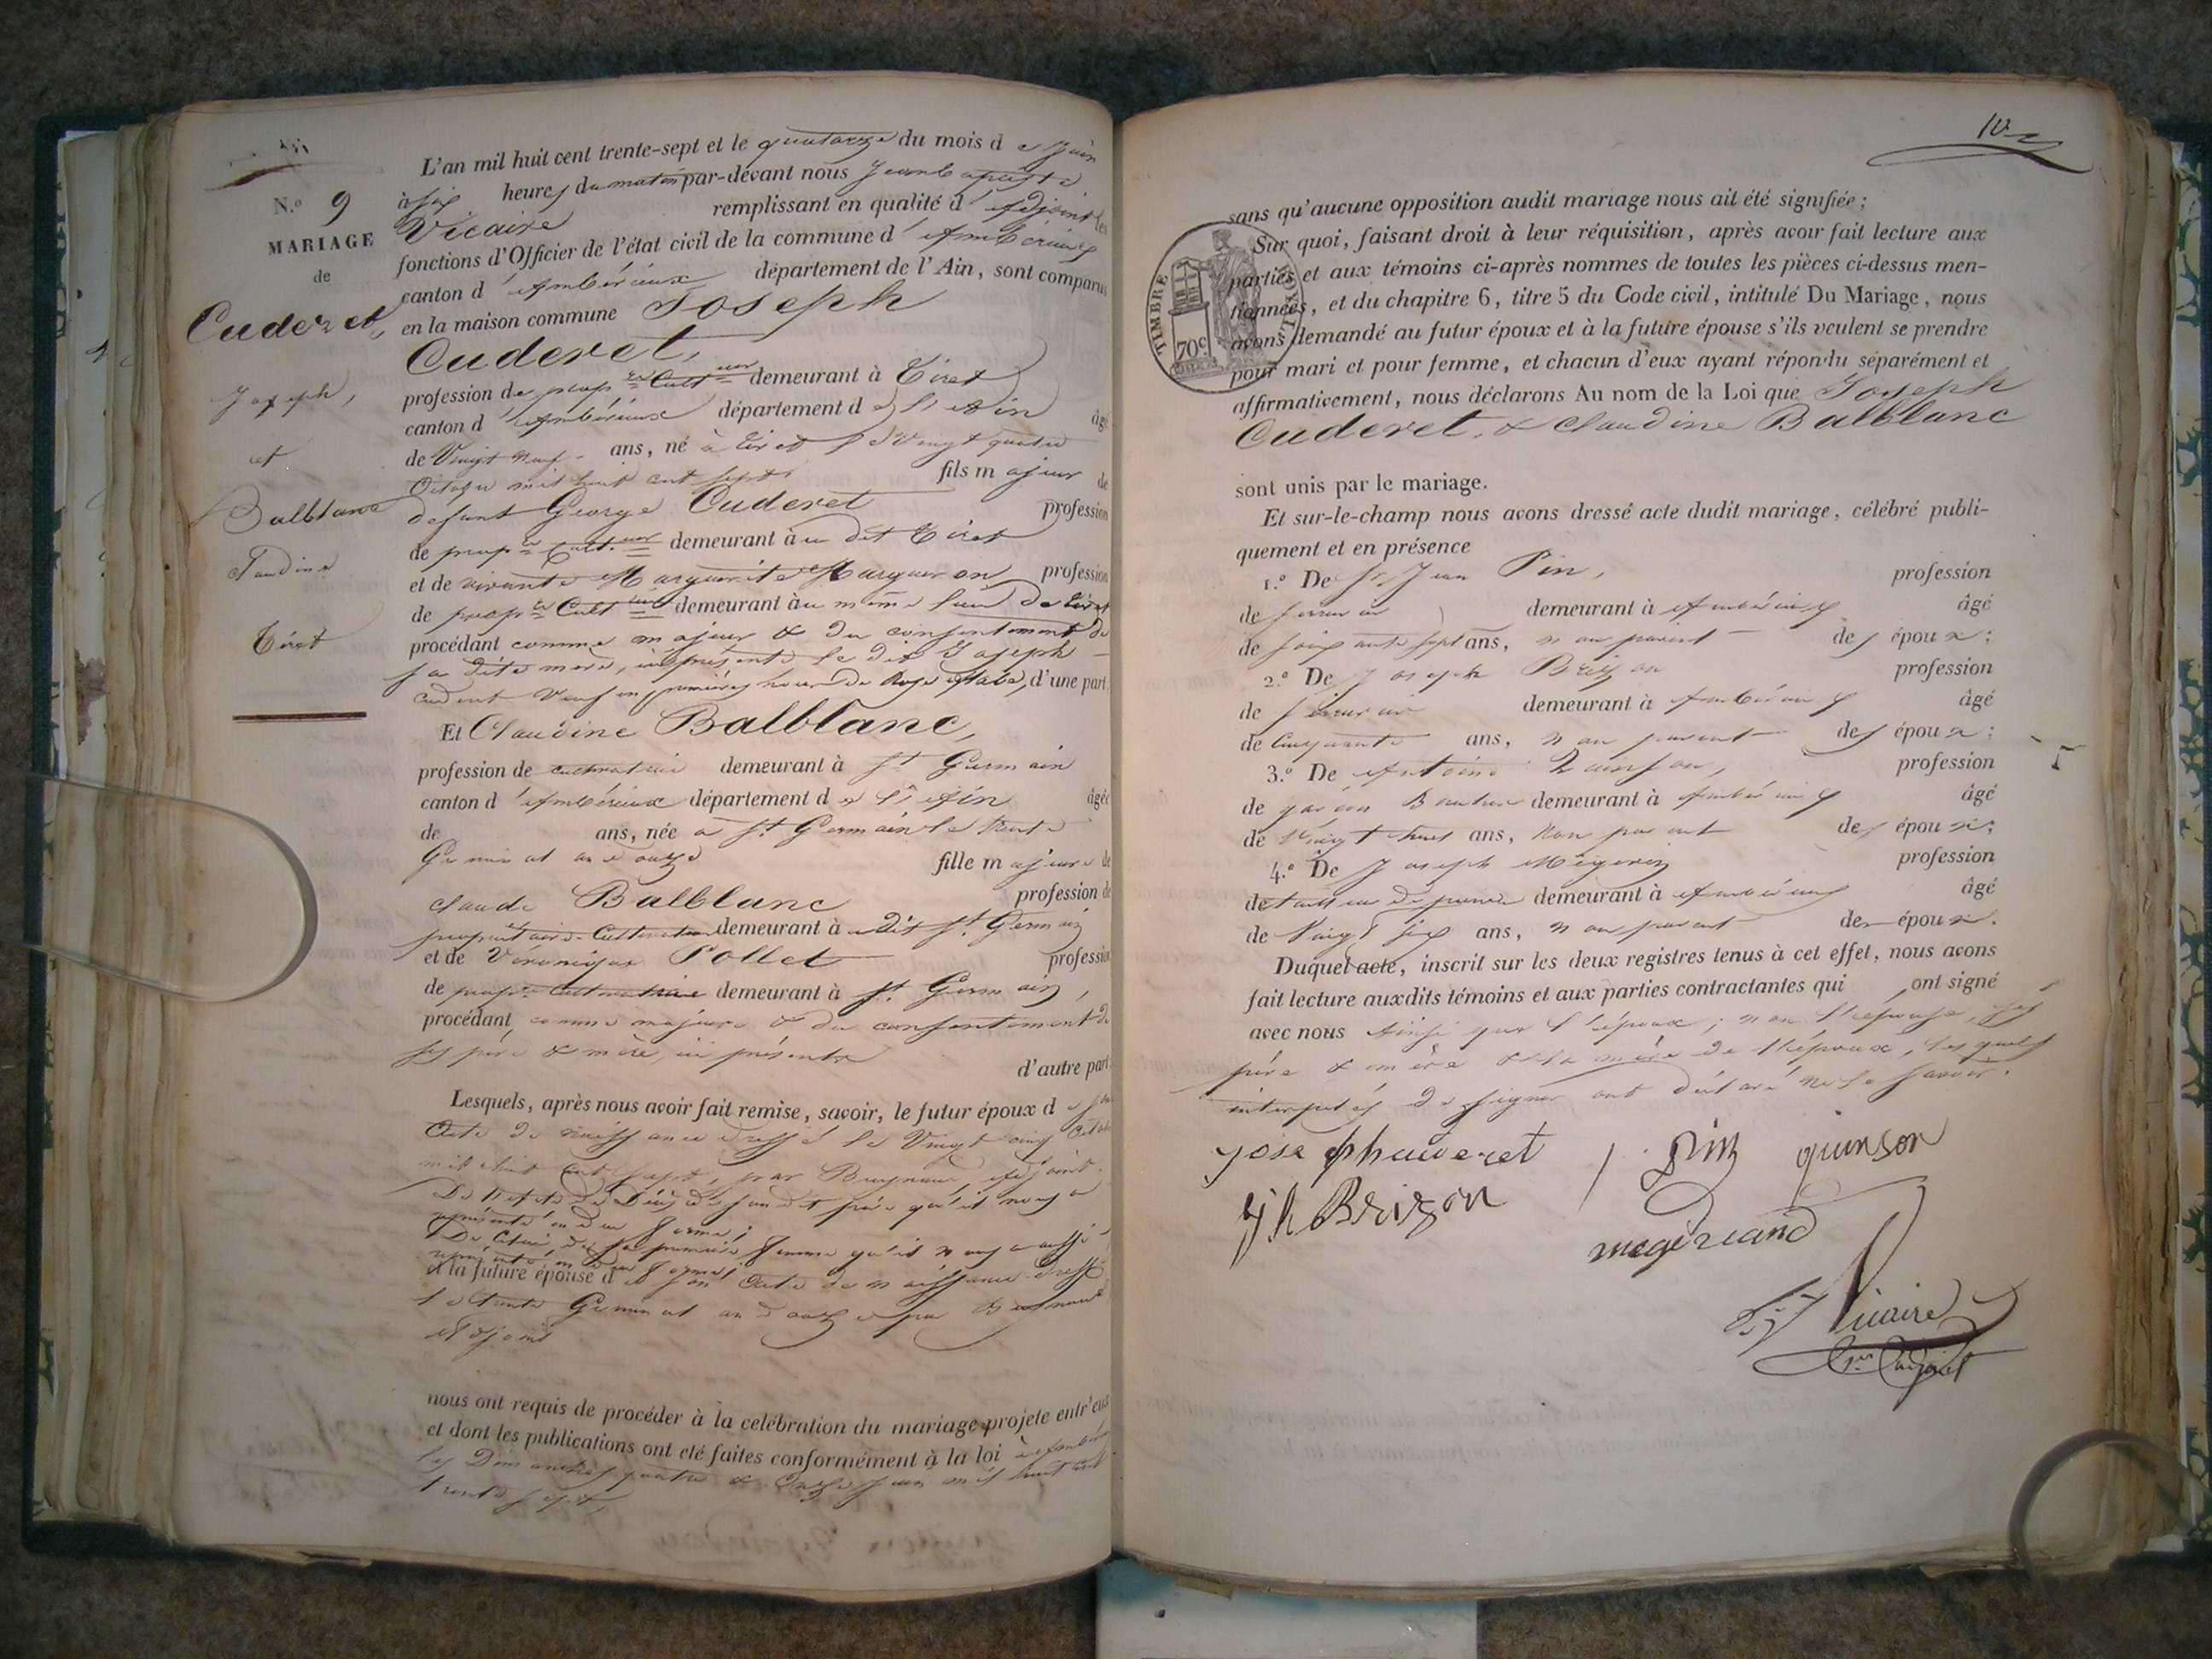 N.º 9
MARIAGE
de
Cuderet,
Joseph,
et
Balblanc
Tiret
L'an mil huit cent trente-sept et le quatorze du mois d e Juin
à six heures du matin par-devant nous Jean baptiste
Vicaire remplissant en qualité d' Adjoint les
fonctions d'Officier de l'état civil de la commune d' Ambérieux
canton d' Ambérieux département de l'Ain, sont comparus
en la maison commune Joseph
Cuderet,
profession de prop.re Cult.eur demeurant à Tiret
canton d' Ambérieux département d e l'Ain âgé
de Vingt neuf ans, né à Tiret le Vingt quatre
Octobre mil huit cent sept fils majeur de
defunt George Cuderet profession
de prop.re Cult.eur demeurant à u dit Tiret
et de vivante Marguerite Margueron profession
de prop.re Cult demeurant à u même lieu de Tiret
procédant comme majeur & du consentement de
sa dite mère, ici présente le dit Joseph
Cuderet Veuf en premières noces de d'une part
Et Claudine Balblanc,
profession de cultivatrice demeurant à St Germain
canton d' Ambérieux département d e l'Ain âgée
de ans, née à St Germain le trente
Germinal an douze fille majeure de
Claude Balblanc profession de
propriétaire Cultivateur demeurant à u dit St Germain
et de Véronique Pollet profession
de prop.re Cultivatrice demeurant à St Germain,
procédant comme majeure & du consentement de
ses père & mère, ici présents d'autre part
Lesquels, après nous avoir fait remise, savoir, le futur époux d e son
Acte de naissance dressé le Vingt cinq Octobre
mil huit cent sept, par adjoint
De l'acte de Décès de son dit père qu'il nous a
représenté en due forme;
De Celui de sa première femme qu'il nous a aussi
représenté en due forme;
et la future épouse d e son Acte de naissance dressé
le trente Germinal an douze par
Adjoint
nous ont requis de procéder à la celébration du mariage projeté entr'eux
et dont les publications ont été faites conformément à la loi à Ambérieux
les Dimanches quatre & Onze Juin mil huit cent
trente sept,
10
TIMBRE ROYAL
70c
sans qu'aucune opposition audit mariage nous ait été signifiée;
Sur quoi, faisant droit à leur réquisition, après avoir fait lecture aux
parties et aux témoins ci-après nommes de toutes les pièces ci-dessus men-
tionnées, et du chapitre 6, titre 5 du Code civil, intitulé Du Mariage, nous
avons demandé au futur époux et à la future épouse s'ils veulent se prendre
pour mari et pour femme, et chacun d'eux ayant répondu séparément et
affirmativement, nous déclarons Au nom de la Loi que Joseph
Cuderet, & Claudine Balblanc
sont unis par le mariage.
Et sur-le-champ nous avons dressé acte dudit mariage, célébré publi-
quement et en présence
1.º De Sr. Jean Pin, profession
de demeurant à Ambérieux âgé
de soixante sept ans, non parent des époux;
2.º De Joseph Brizon profession
de demeurant à Ambérieux âgé
de Cinquante ans, non parent des époux;
3.º De Antoine profession
de garçon demeurant à Ambérieux âgé
de Vingt ans, non parent des époux;
4.º De Joseph profession
de tailleur de pierre demeurant à Ambérieux âgé
de Vingt six ans, non parent des époux.
Duquel acte, inscrit sur les deux registres tenus à cet effet, nous avons
fait lecture auxdits témoins et aux parties contractantes qui ont signé
avec nous Ainsi que l'époux; non l'épouse, ses
père & mère & la mère de l'époux, lesquels
interpelés de signer ont déclaré ne le savoir.
Pin quinson
Brizon
Vicaire